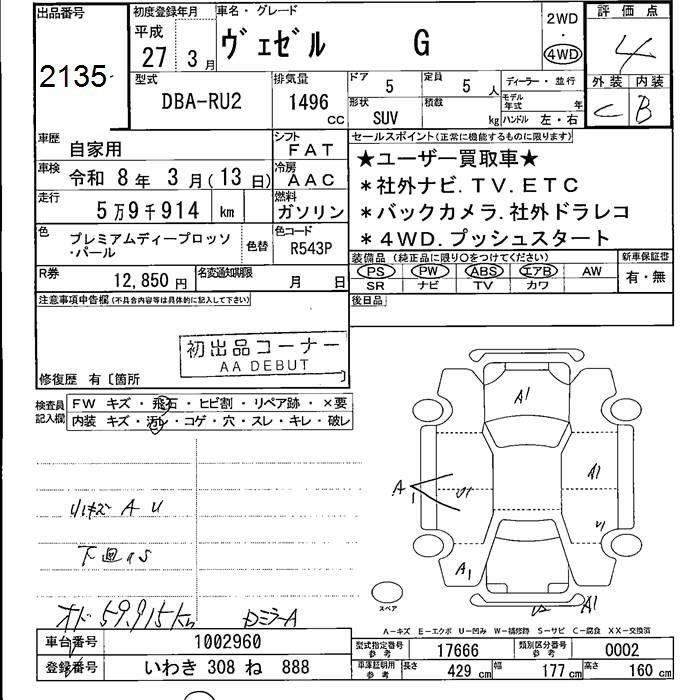 出品番号
2135
初度登録年月
平成
27 3 月
車名・グレード
ヴェゼル G
2WD
・
4WD
評価点
4
型式
DBA-RU2
排気量
1496
cc
ドア
5
定員
5 人
形状
SUV
積載
kg
ディーラー・並行
モデル年式 年
ハンドル 左・右
外装 内装
C B
車歴
自家用
シフト
FAT
車検
令和 8 年 3 月 (13 日)
冷房
AAC
走行
5万9千914 km
燃料
ガソリン
色
プレミアムディープロッソ
・パール
色替
色コード
R543P
R券
12,850 円
名変通知期限
月 日
セールスポイント(正常に機能するものに限ります)
★ユーザー買取車★
＊社外ナビ.TV.ETC
＊バックカメラ.社外ドラレコ
＊4WD.プッシュスタート
装備品 (純正品に限り○をつけてください)
PS PW ABS エアB AW
SR ナビ TV カワ
新車保証書
有・無
後日品
注意事項申告欄(不具合内容等は具体的に記入して下さい)
初出品コーナー
AA DEBUT
修復歴 有〔箇所 〕
検査員
記入欄
FW キズ・飛石・ヒビ割・リペア跡・×要
内装 キズ・汚レ・コゲ・穴・スレ・キレ・破レ
小キズ A U
下回りS
オド 59,915km
DミラーA
A1
A1
A1
U1
U1
A1
A1
スペア
A－キズ E－エクボ U－凹み W－補修跡 S－サビ C－腐食 XX－交換済
車台番号
1002960
登録番号
いわき 308 ね 888
型式指定番号
参考
17666
類別区分番号
参考
0002
車庫証明用
参考
長さ 429 cm
幅 177 cm
高さ 160 cm